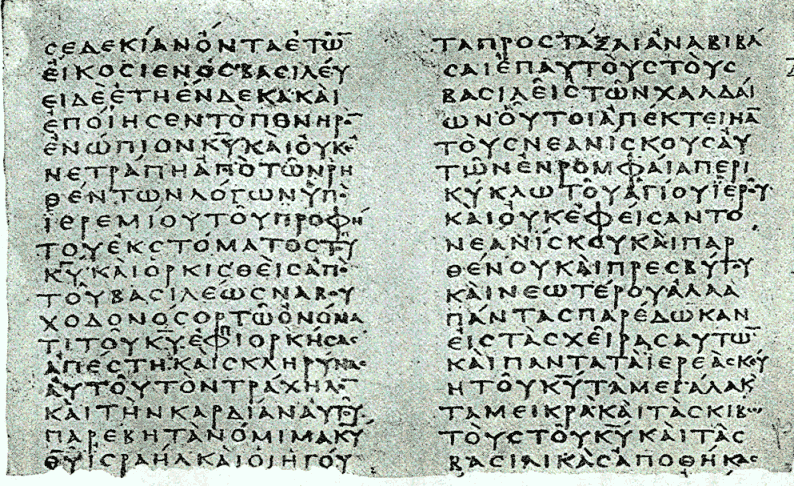 ϹΕΔΕΚΙΑΝΟΝΤΑΕΤΩ̅
ΕΙΚΟϹΙΕΝΟϹΒΑϹΙΛΕΥ
ΕΙΔΕΕΤΗΕΝΔΕΚΑΚΑΙ
ΕΠΟΙΗϹΕΝΤΟΠΟΝΗΡΟ̅
ΕΝΩΠΙΟΝΚ̅Υ̅ΚΑΙΟΥΚΕ
ΝΕΤΡΑΠΗΑΠΟΤΩΝΡΗ
ΘΕΝΤΩΝΛΟΓΩΝΥΠΟ
ΙΕΡΕΜΙΟΥΤΟΥΠΡΟΦΗ
ΤΟΥΕΚϹΤΟΜΑΤΟϹΤΟΥ
Κ̅Υ̅ΚΑΙΟΡΚΙϹΘΕΙϹΑΠΟ
ΤΟΥΒΑϹΙΛΕΩϹΝΑΒΟΥ
ΧΟΔΟΝΟϹΟΡΤΩΟΝΟΜΑ
ΤΙΤΟΥΚ̅Υ̅ΕΦΙΟΡΚΗϹΑϹ
ΑΠΕϹΤΗΚΑΙϹΚΛΗΡΥΝΑϹ
ΑΥΤΟΥΤΟΝΤΡΑΧΗΛΟ̅
ΚΑΙΤΗΝΚΑΡΔΙΑΝΑΥΤΟΥ
ΠΑΡΕΒΗΤΑΝΟΜΙΜΑΚ̅Υ̅
Θ̅Υ̅ΙϹΡΑΗΛΚΑΙΟΙΗΓΟΥ
ΤΑΠΡΟϹΤΑΞΑΙΑΝΑΒΙΒΑ
ϹΑΙΕΠΑΥΤΟΥϹΤΟΥϹ
ΒΑϹΙΛΕΙϹΤΩΝΧΑΛΔΑΙ
ΩΝΟΥΤΟΙΑΠΕΚΤΕΙΝΑ̅
ΤΟΥϹΝΕΑΝΙϹΚΟΥϹΑΥ
ΤΩΝΕΝΡΟΜΦΑΙΑΠΕΡΙ
ΚΥΚΛΩΤΟΥΑΓΙΟΥΪΕΡΟΥ
ΚΑΙΟΥΚΕΦΕΙϹΑΝΤΟ
ΝΕΑΝΙϹΚΟΥΚΑΙΠΑΡ
ΘΕΝΟΥΚΑΙΠΡΕϹΒΥΤΟΥ
ΚΑΙΝΕΩΤΕΡΟΥΑΛΛΑ
ΠΑΝΤΑϹΠΑΡΕΔΩΚΑΝ
ΕΙϹΤΑϹΧΕΙΡΑϹΑΥΤΩ̅
ΚΑΙΠΑΝΤΑΤΑΙΕΡΕΑϹΚΟΥ
ΗΤΟΥΚ̅Υ̅ΤΑΜΕΓΑΛΑΚ
ΤΑΜΕΙΚΡΑΚΑΙΤΑϹΚΙΒΩ
ΤΟΥϹΤΟΥΚ̅Υ̅ΚΑΙΤΑϹ
ΒΑϹΙΛΙΚΑϹΑΠΟΘΗΚΑϹ